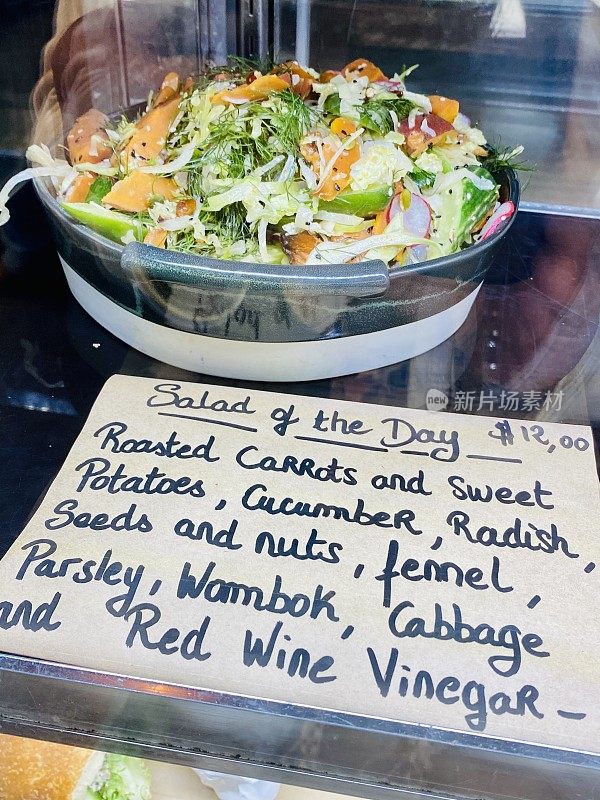 Salad of the Day $12,00
Roasted Carrots and Sweet
Potatoes, Cucumber, Radish,
Seeds and nuts, fennel,
Parsley, Wombok, Cabbage
and Red Wine Vinegar -
新片场素材